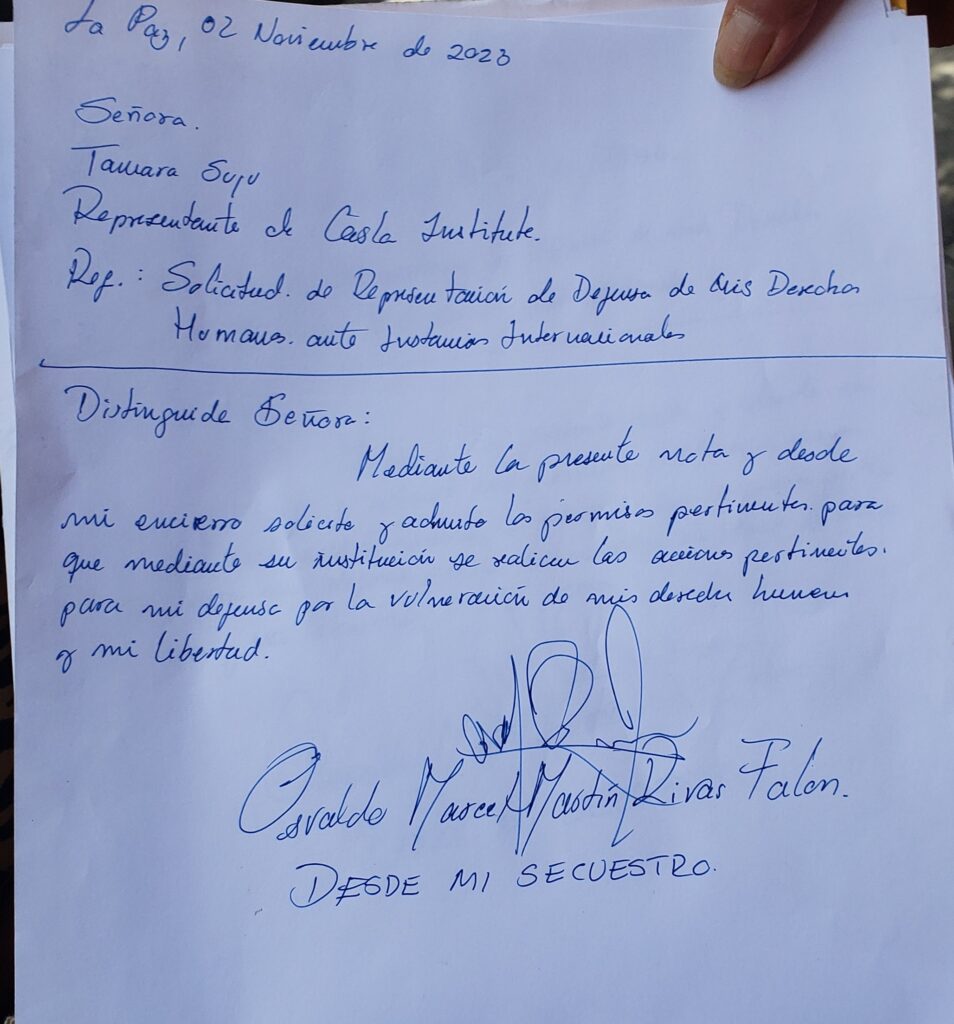 La Paz, 02 Noviembre de 2023
Señora.
Tamara Suju
Representante de Casla Institute.
Ref.: Solicitud. de Representación de Defensa de Mis Derechos
Humanos. ante Instancias Internacionales
Distinguida Señora:
Mediante la presente nota y desde
mi encierro solicito y adjunto los permisos pertinentes. para
que mediante su institución se realicen las acciones pertinentes.
para mi defensa por la vulneración de mis derechos humanos
y mi libertad.
Osvaldo Marcel Martin Rivas Falon.
DESDE MI SECUESTRO.